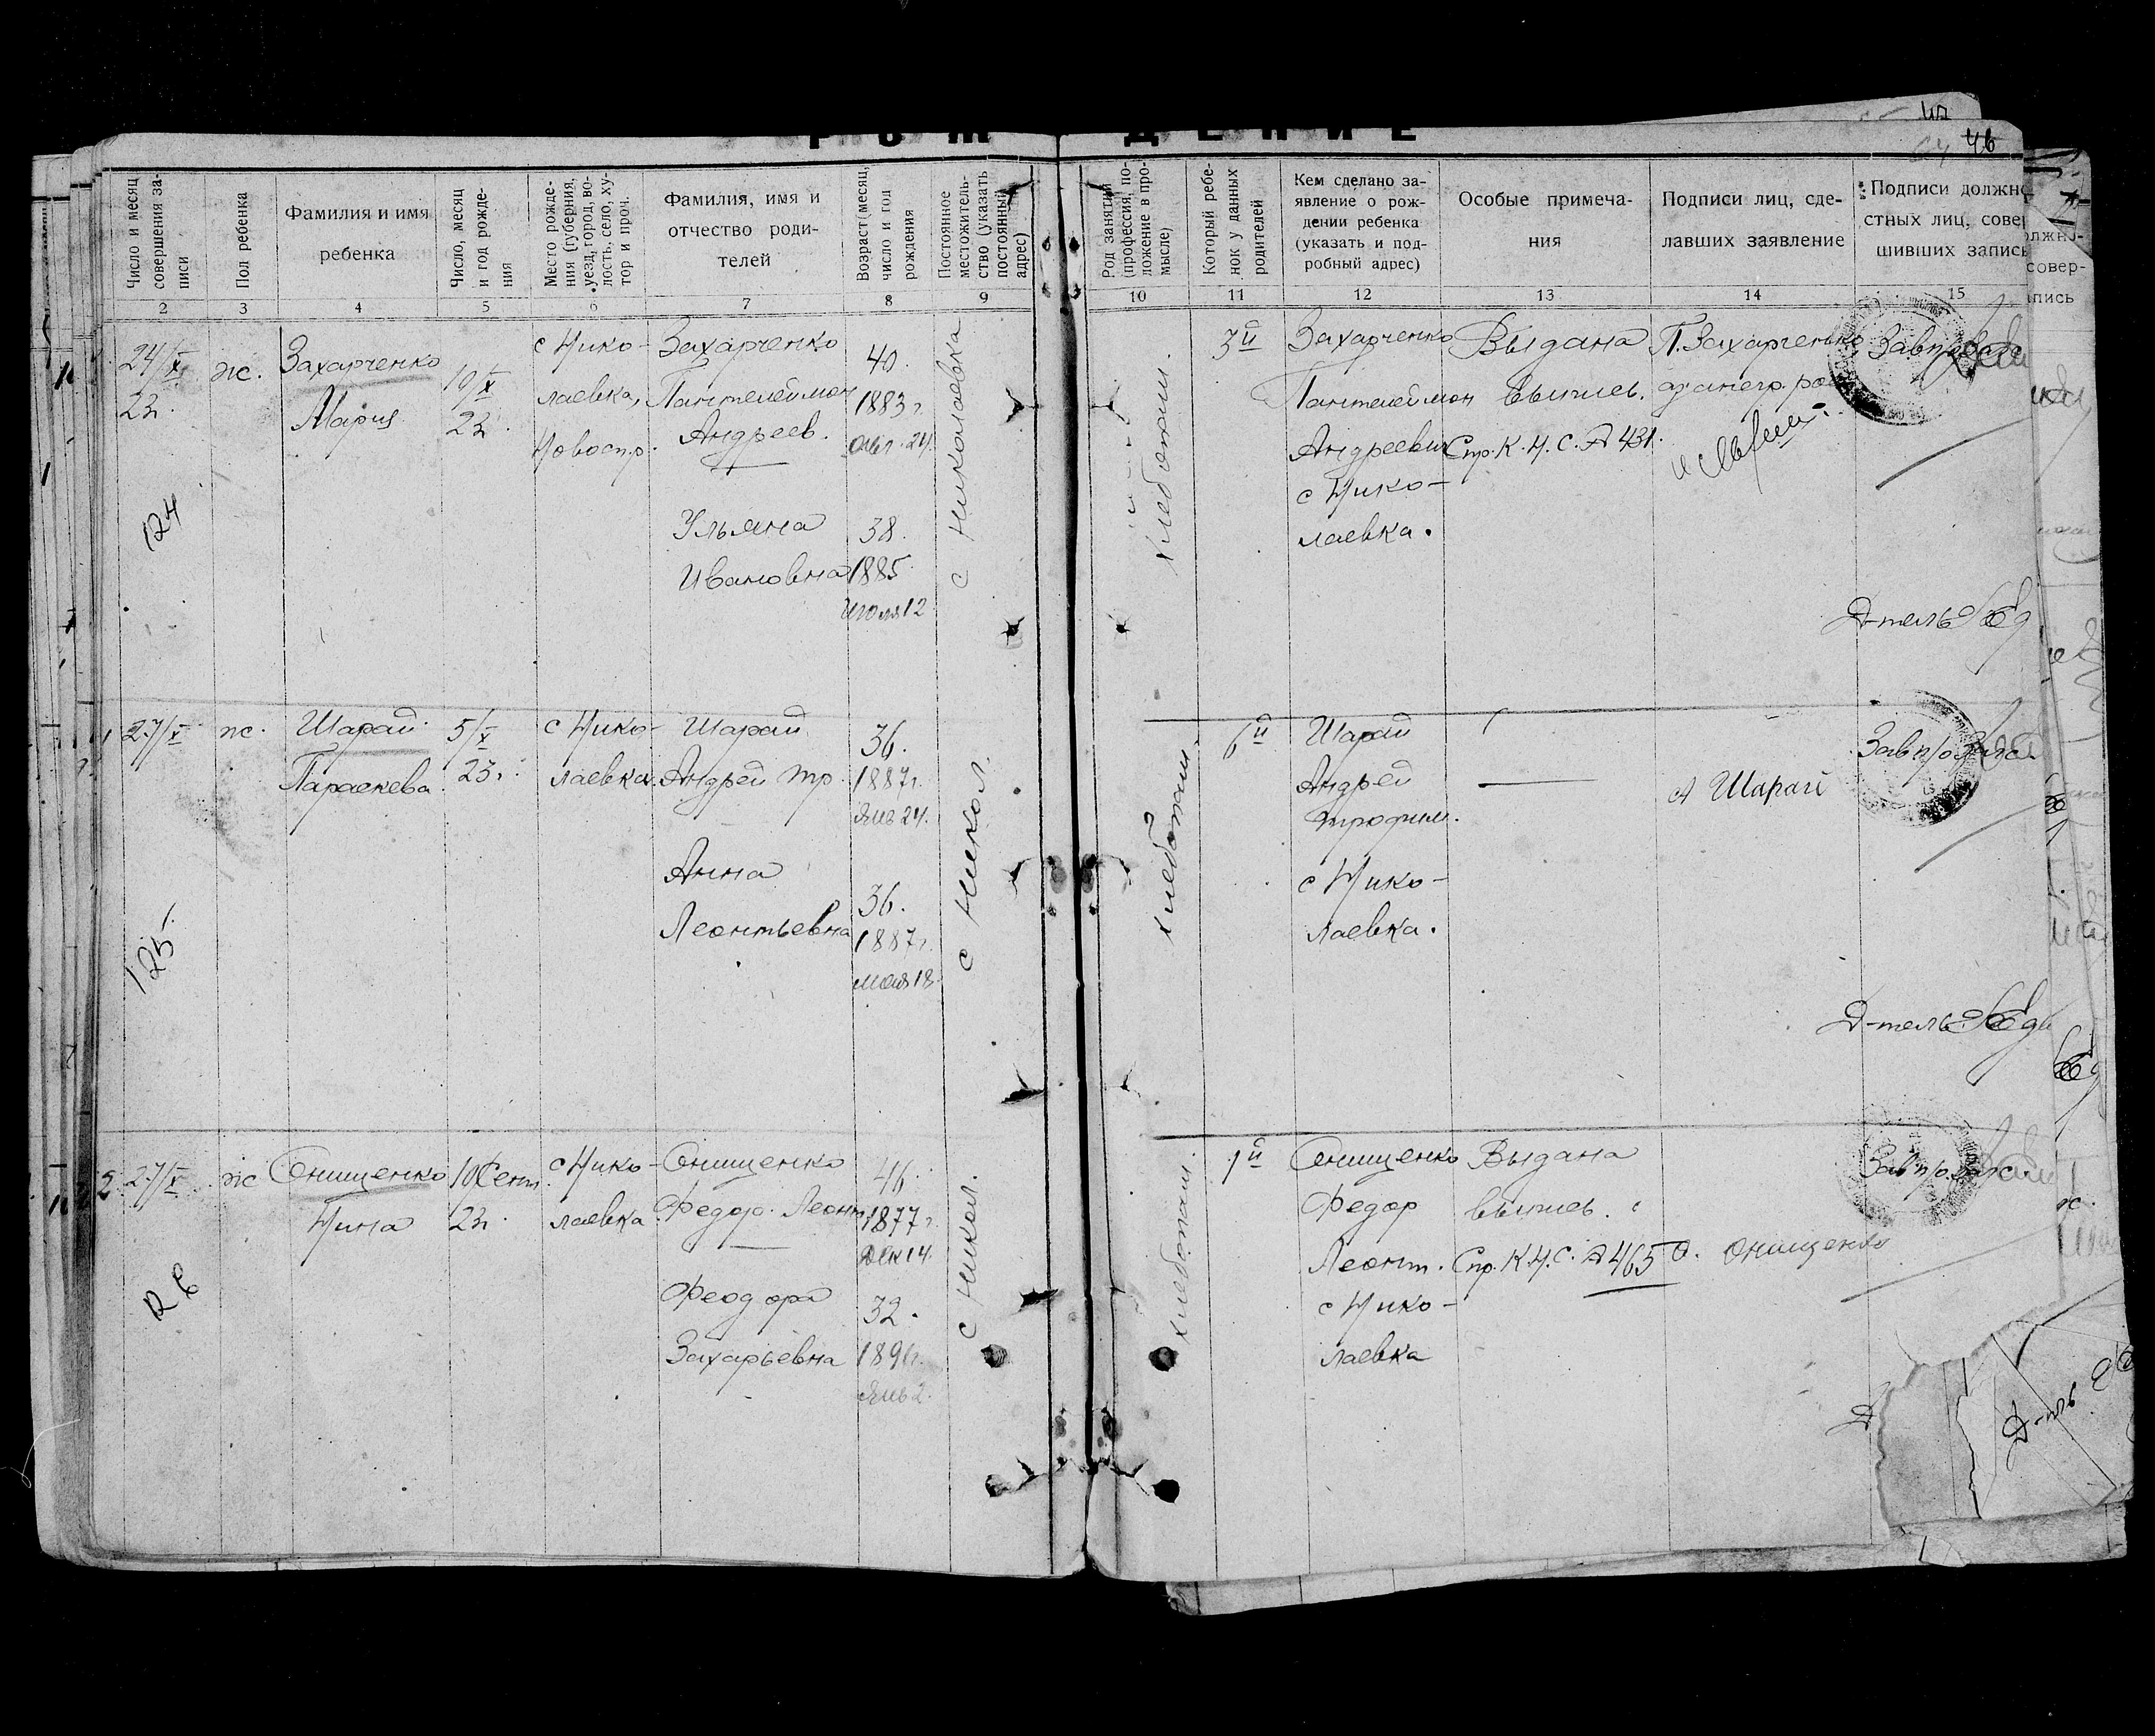 РОЖДЕНИЕ
47
46
Число и месяц
совершения за-
писи
Пол ребенка
Фамилия и имя
ребенка
Число, месяц
и год рожде-
ния
Место рожде-
ния (губерния,
уезд, город, во-
лость, село, ху-
тор и проч.
Фамилия, имя и
отчество роди-
телей
Возраст (месяц,
число и год
рождения
Постоянное
местожитель-
ство (указать
постоянный
адрес)
Род занятий
(профессия, по-
ложение в про-
мысле)
Который ребе-
нок у данных
родителей
Кем сделано за-
явление о рож-
дении ребенка
(указать и под-
робный адрес)
Особые примеча-
ния
Подписи лиц, сде-
лавших заявление
Подписи должно
стных лиц, совер
шивших запись
2 3 4 5 6 7 8 9 10 11 12 13 14 15
24/X
23г.
124
ж.
Захарченко
Мария
10/X
23г.
с Нико-
лаевка,
Новоспр.
Захарченко
Пантелеймон
Андреев.
Ульяна
Ивановна
40.
1883г.
38.
1885
Июля 12
с Николаевка
хлебопаш.
3й
Захарченко
Пантелеймон
Андреевич
с Нико-
лаевка.
Выдана
выпись.
Спр. К.Н.С. № 431.
П. Захарченько
Д-тель
27/X
125
ж.
Шарай
Параскева
5/X
23г.
с Нико-
лаевка.
Шарай
Андрей Тр.
Анна
Леонтьевна
36.
1887г.
Янв 24.
36.
1887г.
мая 18
с Никол.
хлебопаш.
6й
Шарай
Андрей
Трофим.
с Нико-
лаевка.
А Шарай
Зав п/о Загса
Д-тель
2
27/X
126
ж
Онищенко
Нина
10 Сент.
23г.
с Нико-
лаевка
Онищенко
Федор. Леонт.
Феодора
Захарьевна
46.
1877г.
Дек 14.
32.
1891г.
Янв 2.
с Никол.
хлебопаш.
1й
Онищенко
Федор
Леонт.
с Нико-
лаевка
Выдана
выпись.
Спр. К.Н.С. № 465
Ф. Онищенко
Зав п/о. Загс.
Д-ль